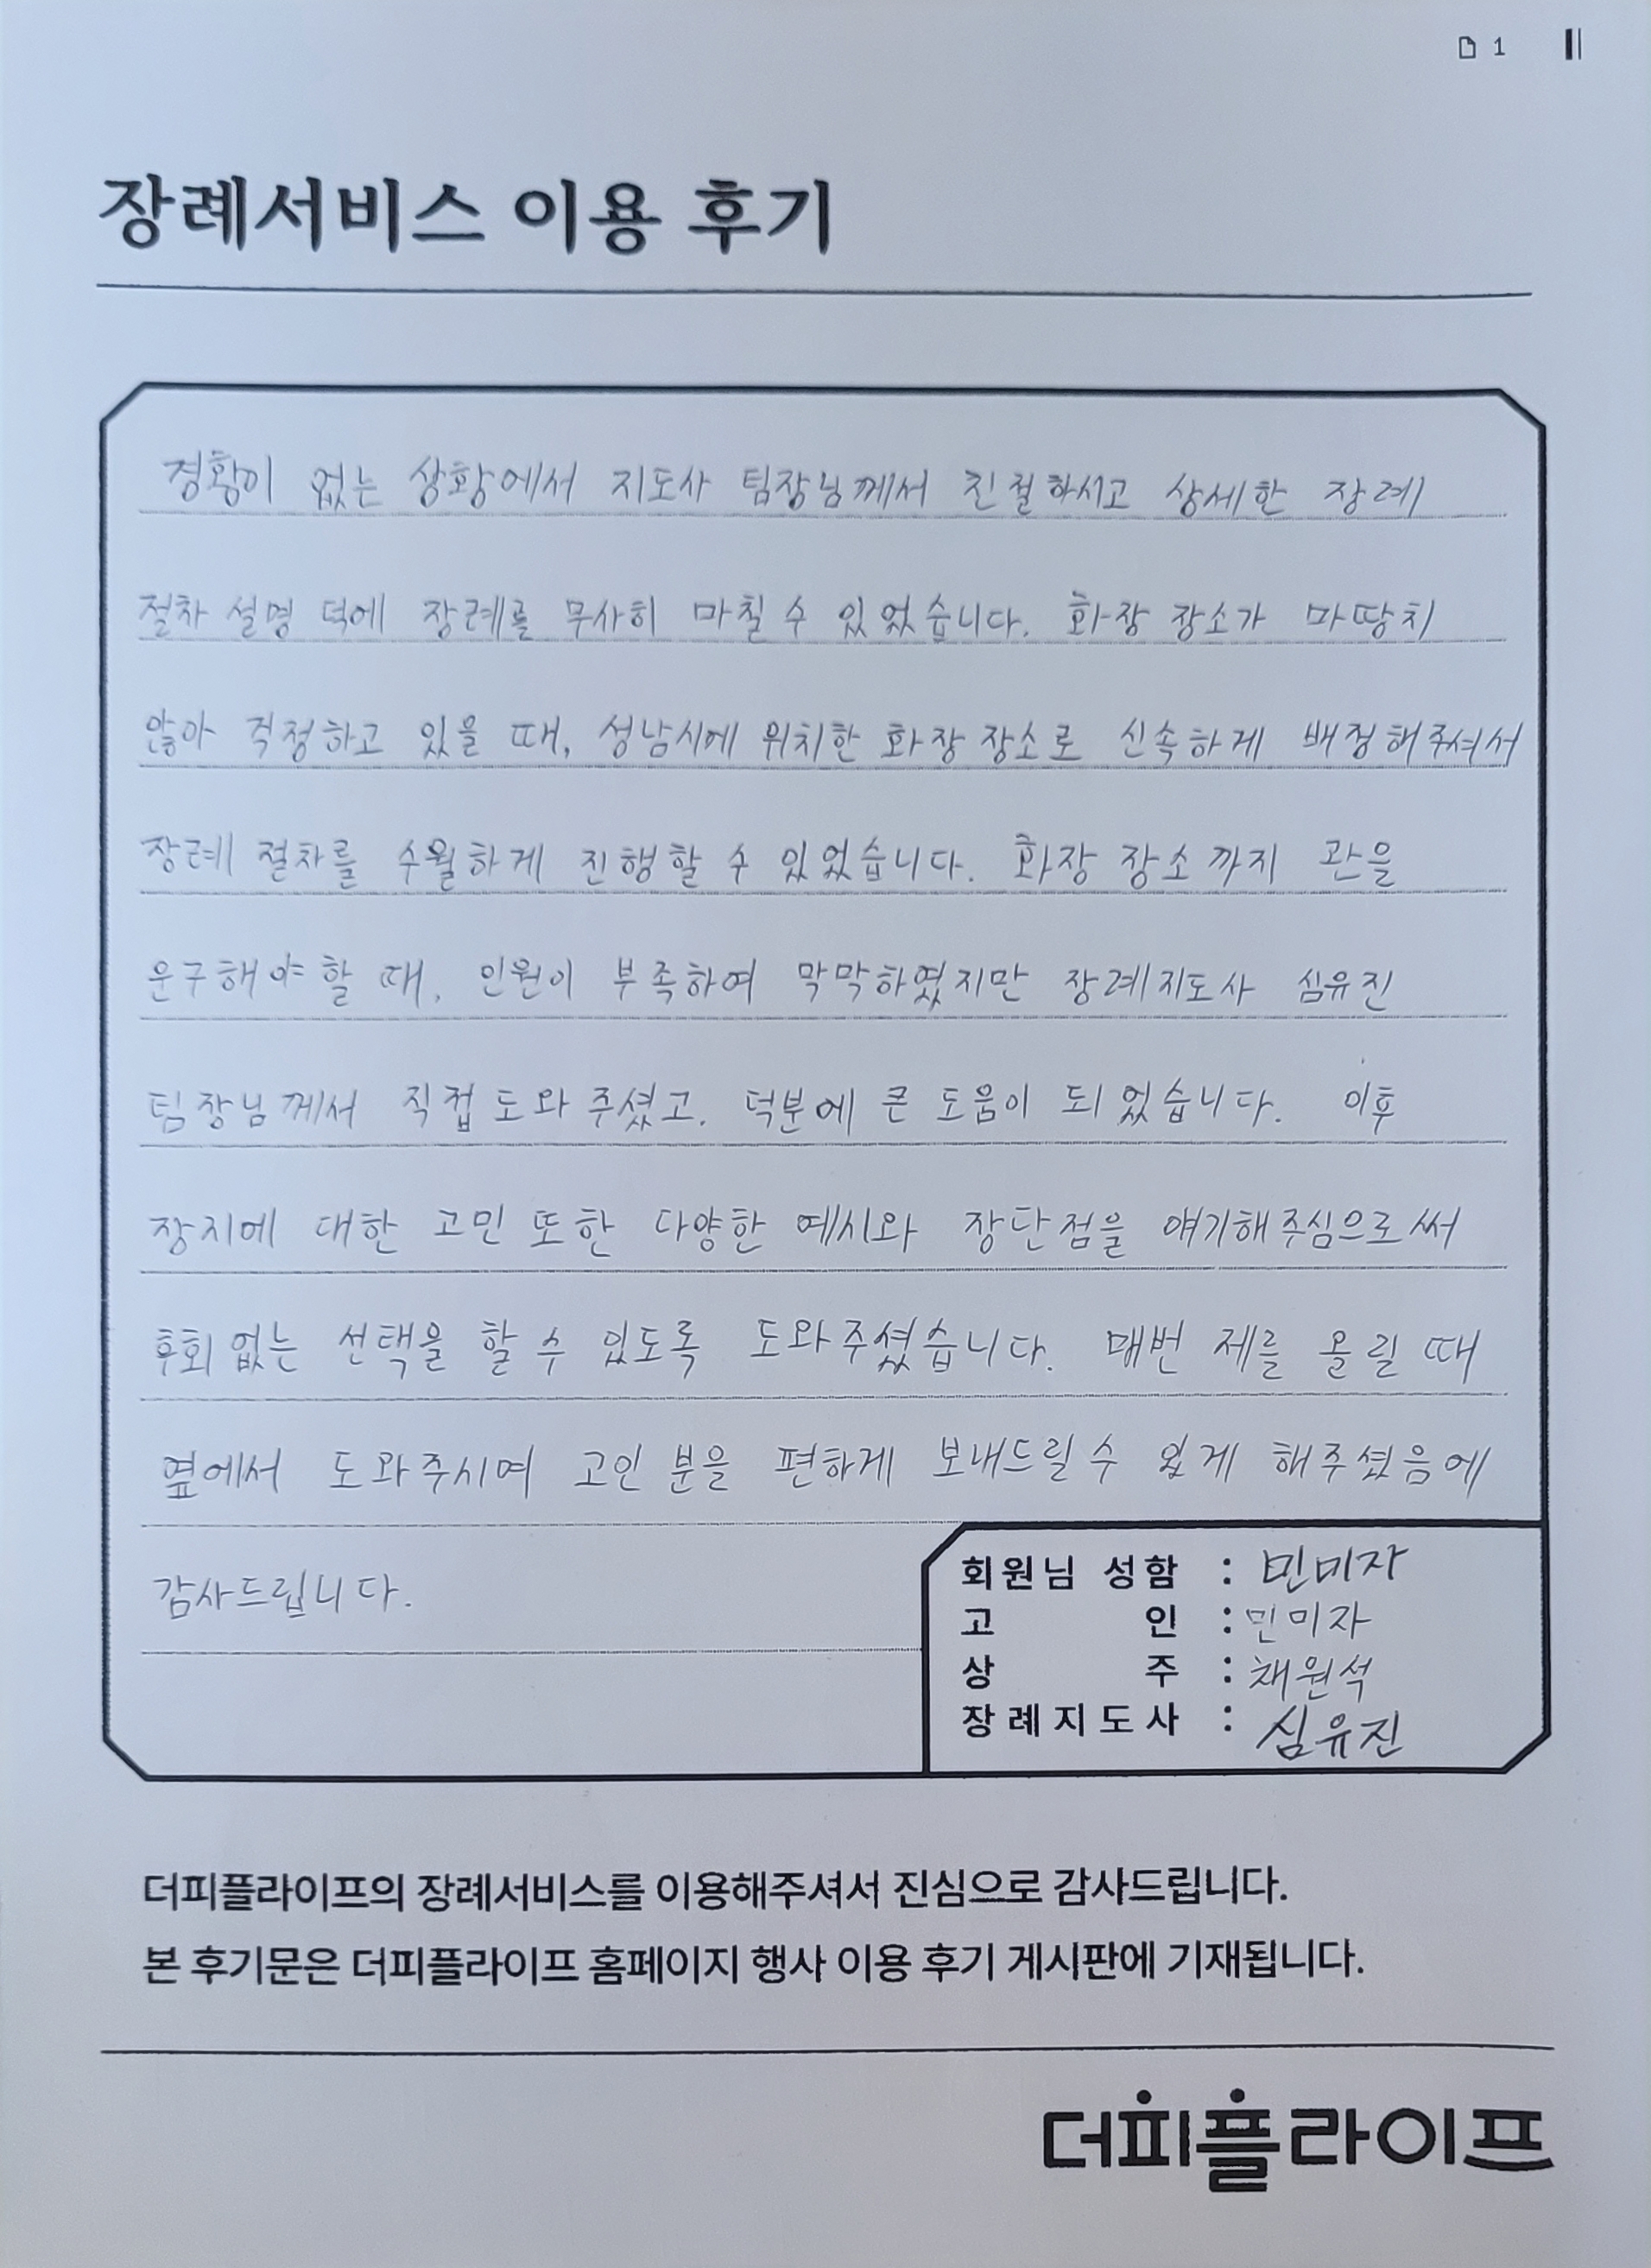 1
장례서비스 이용 후기
경황이 없는 상황에서 지도사 팀장님께서 친절하시고 상세한 장례
절차 설명 덕에 장례를 무사히 마칠 수 있었습니다. 화장 장소가 마땅치
않아 걱정하고 있을 때, 성남시에 위치한 화장 장소로 신속하게 배정해주셔서
장례 절차를 수월하게 진행할 수 있었습니다. 화장 장소까지 관을
운구해야 할 때, 인원이 부족하여 막막하였지만 장례지도사 심유진
팀장님께서 직접 도와주셨고. 덕분에 큰 도움이 되었습니다. 이후
장지에 대한 고민 또한 다양한 예시와 장단점을 얘기해주심으로써
후회 없는 선택을 할 수 있도록 도와주셨습니다. 매번 제를 올릴 때
옆에서 도와주시며 고인 분을 편하게 보내드릴 수 있게 해주셨음에
감사드립니다.
회원님 성함 : 민미자
고 인 : 민미자
상 주 : 채원석
장례지도사 : 심유진
더피플라이프의 장례서비스를 이용해주셔서 진심으로 감사드립니다.
본 후기문은 더피플라이프 홈페이지 행사 이용 후기 게시판에 기재됩니다.
더피플라이프